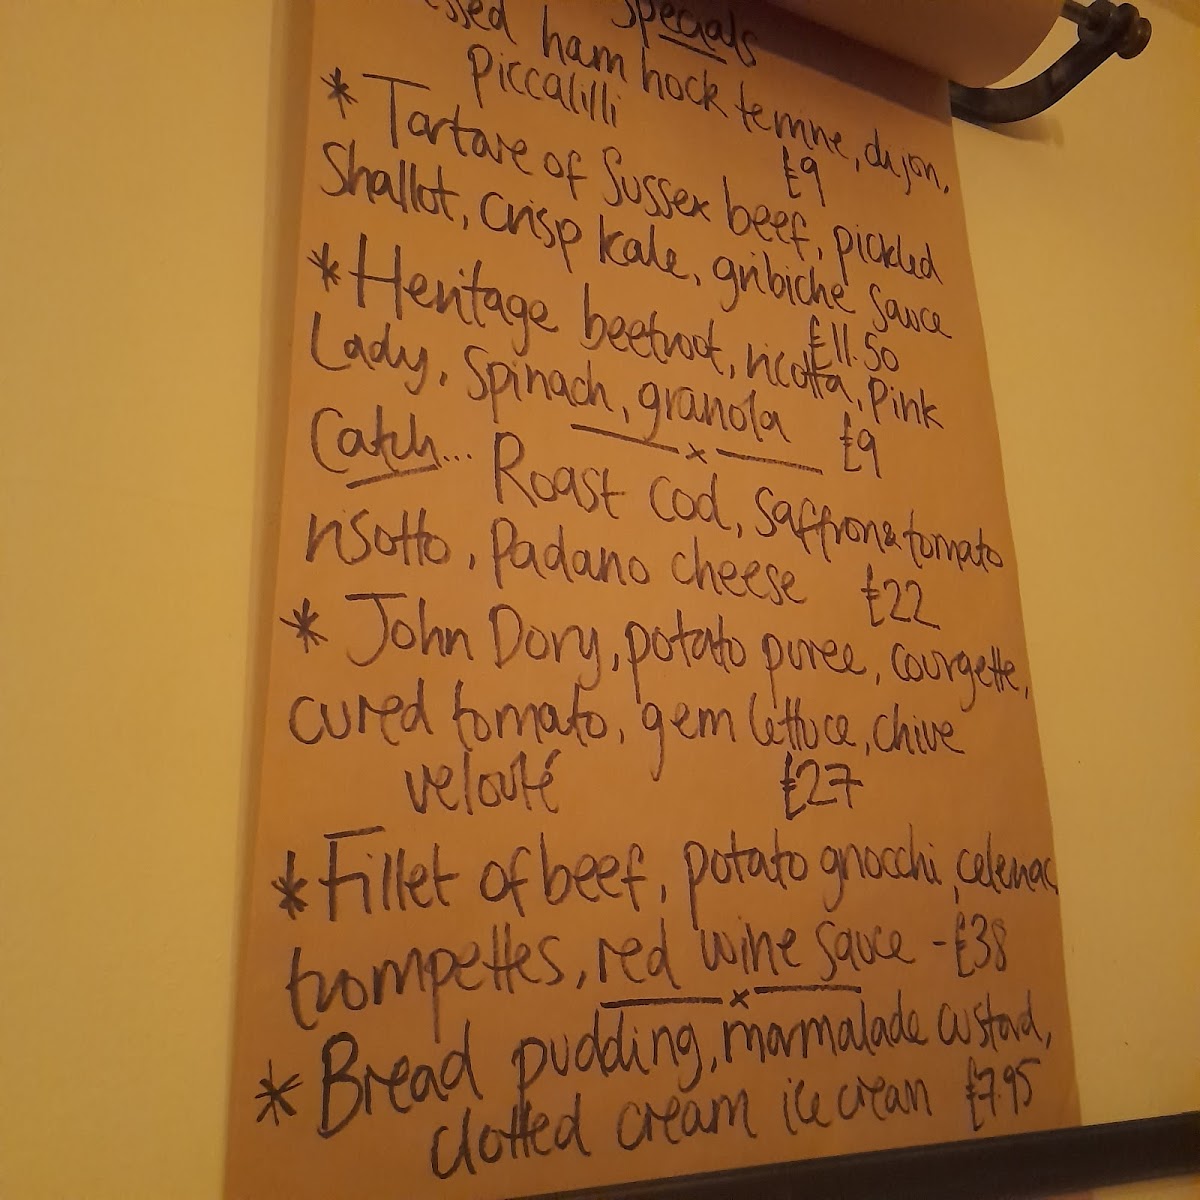 Specials
ham hock terrine, dijon,
piccalilli £9
* Tartare of Sussex beef, pickled
Shallot, crisp kale, gribiche sauce
£11.50
* Heritage beetroot, ricotta, Pink
Lady, Spinach, granola £9
x
Catch... Roast cod, saffron & tomato
risotto, Padano cheese £22
* John Dory, potato puree, courgette,
cured tomato, gem lettuce, chive
velouté £27
* Fillet of beef, potato gnocchi, celeriac,
trompettes, red wine sauce - £38
x
* Bread pudding, marmalade custard,
clotted cream ice cream £7.95